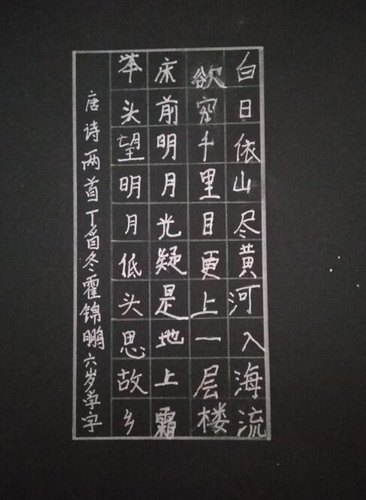 白日依山尽黄河入海流
欲穷千里目更上一层楼
床前明月光疑是地上霜
举头望明月低头思故乡
唐诗两首丁酉冬霍锦鹏六岁学字